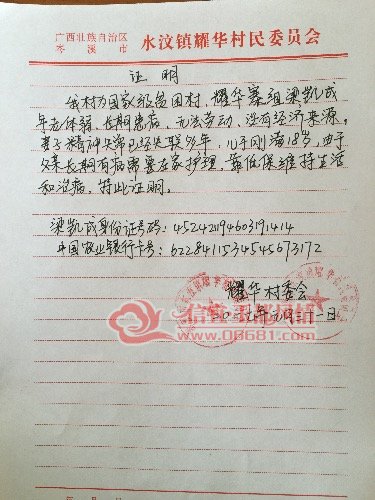 广西壮族自治区
岑溪市
水汶镇耀华村民委员会
证明
我村为国家级贫困村,耀华寨组梁凯成
年老体弱,长期患病,无法劳动,没有经济来源。
妻子精神失常已经失联多年,儿子刚满18岁,由于
父亲长期有病需要在家护理,靠低保维持生活
和治病,特此证明。
梁凯成身份证号码:452421194603191414
中国农业银行卡号:6228411534545673172
耀华村委会
信宜玉都网络
www.06681.com